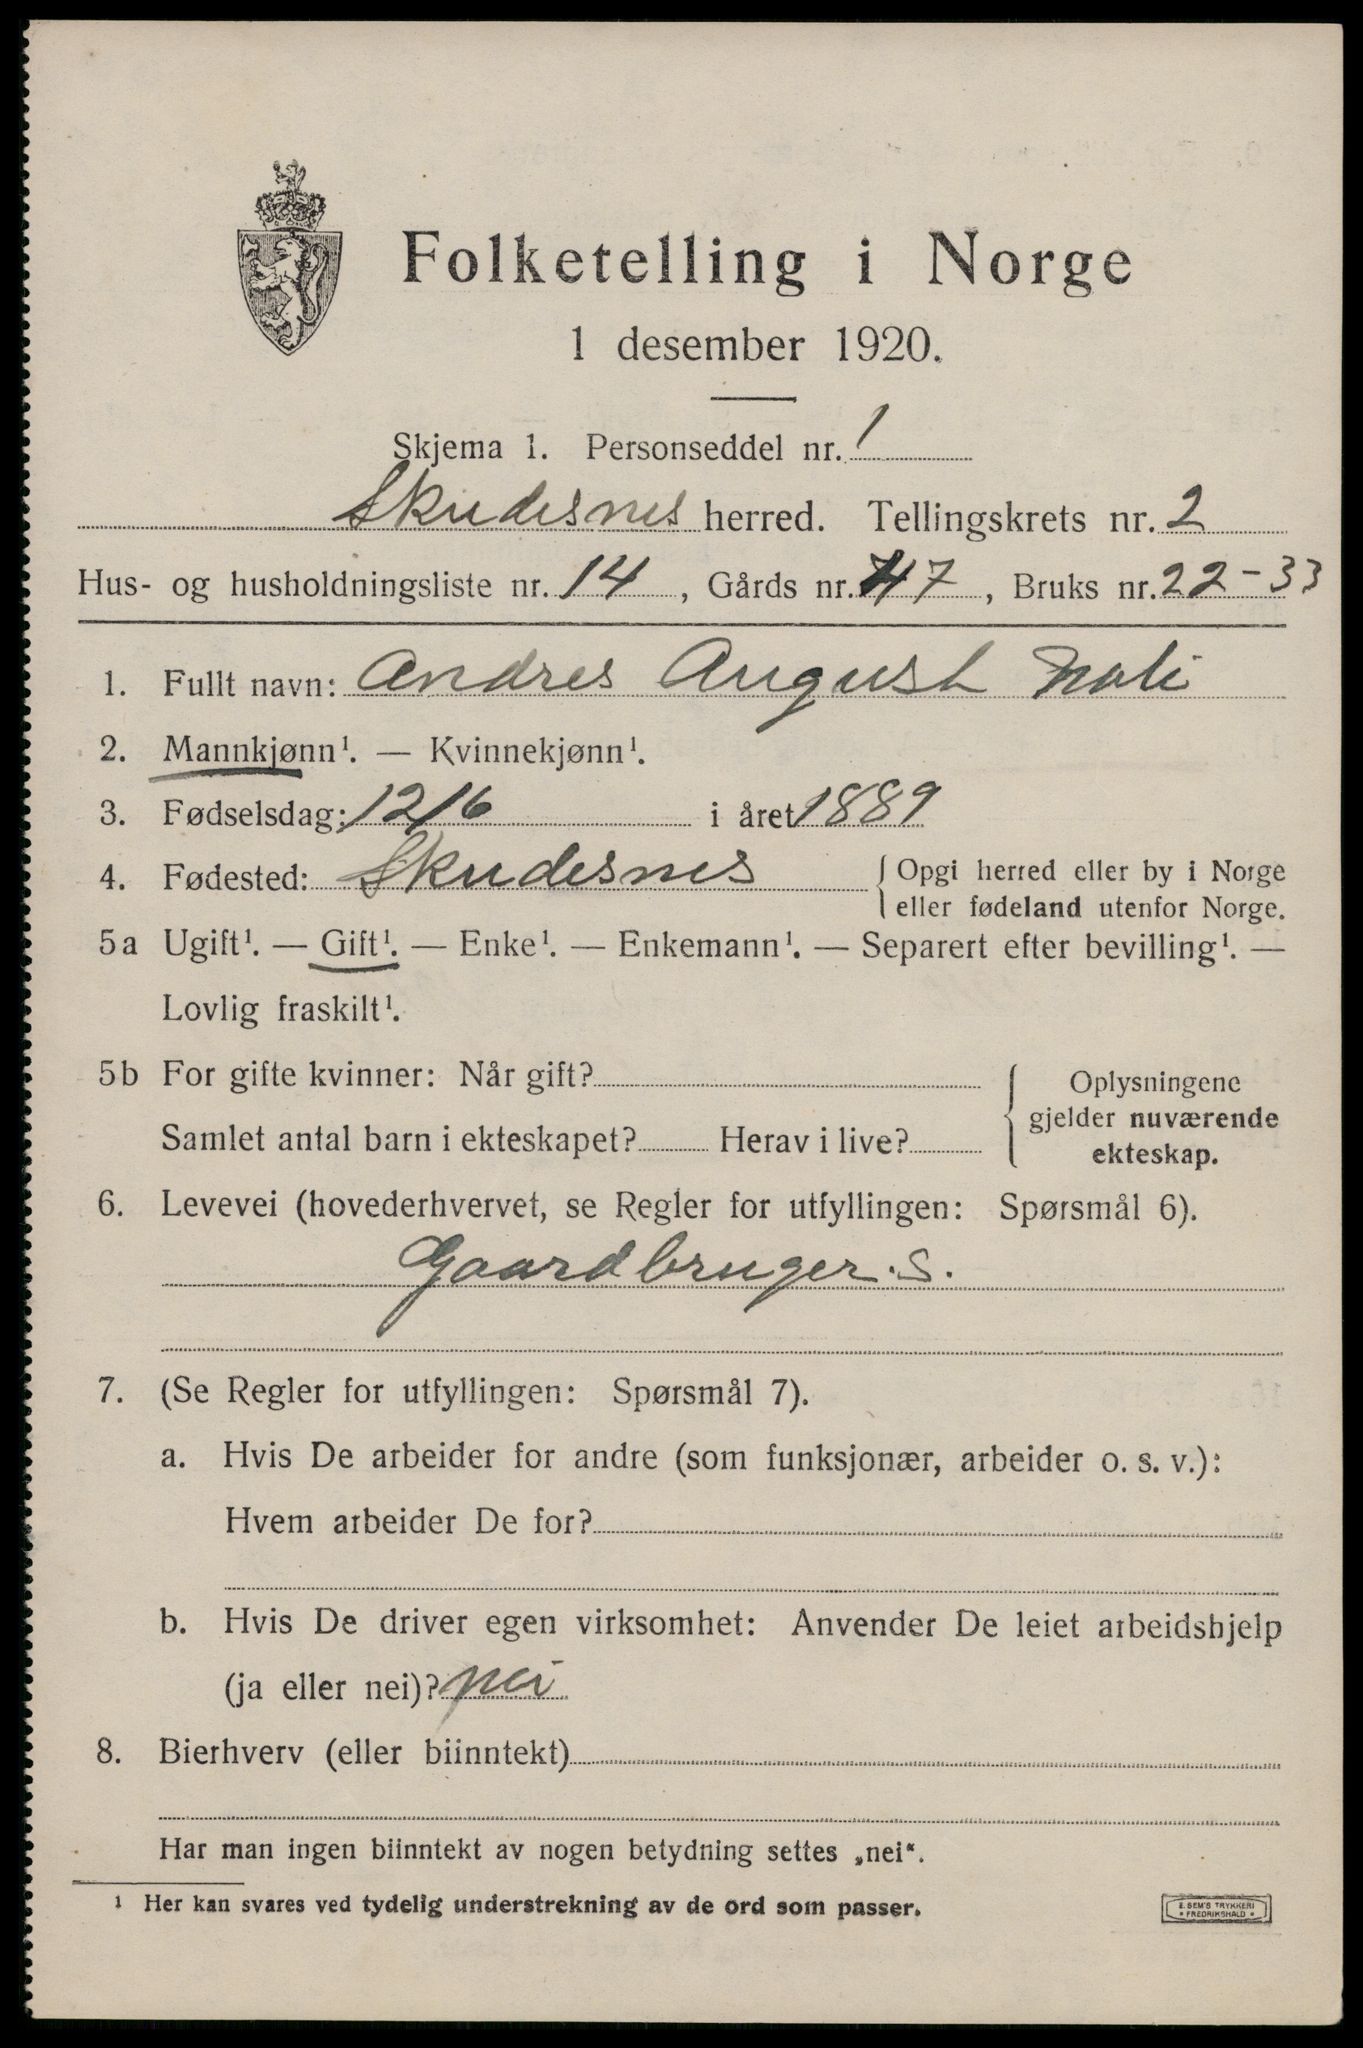 Folketelling i Norge
1 desember 1920.
Skjema 1. Personseddel nr. 1
Skudesnes herred. Tellingskrets nr. 2
Hus- og husholdningsliste nr. 14, Gårds nr. 47, Bruks nr. 22-33
1. Fullt navn: Andres August
2. Mannkjønn¹. — Kvinnekjønn¹.
3. Fødselsdag: 12/6 i året 1889
4. Fødested: Skudesnes { Opgi herred eller by i Norge
eller fødeland utenfor Norge.
5a Ugift¹. — Gift¹. — Enke¹. — Enkemann¹. — Separert efter bevilling¹. —
Lovlig fraskilt¹.
5b For gifte kvinner: Når gift?
Samlet antal barn i ekteskapet? Herav i live?
Oplysningene
gjelder nuværende
ekteskap.
6. Levevei (hovederhvervet, se Regler for utfyllingen: Spørsmål 6).
Gaardbruger. S.
7. (Se Regler for utfyllingen: Spørsmål 7).
a. Hvis De arbeider for andre (som funksjonær, arbeider o. s. v.):
Hvem arbeider De for?
b. Hvis De driver egen virksomhet: Anvender De leiet arbeidshjelp
(ja eller nei)? nei
8. Bierhverv (eller biinntekt)
Har man ingen biinntekt av nogen betydning settes „nei“.
¹ Her kan svares ved tydelig understrekning av de ord som passer.
E. SEM'S TRYKKERI
* FREDRIKSHALD *